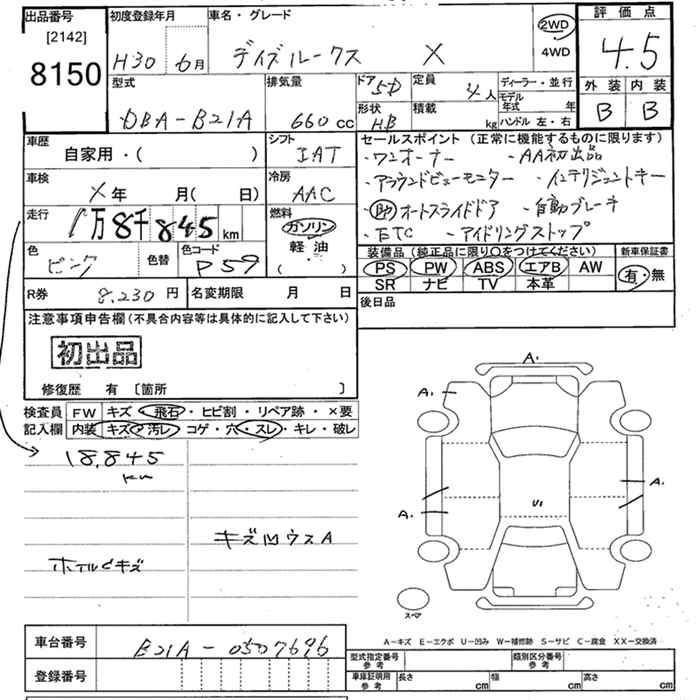 出品番号 初度登録年月 車名・グレード 評価点
[2142] 2WD
8150 H30 6月 デイズルークス X 4WD 4.5
型式 排気量 ドア 5D 定員 4人 ディーラー・並行 外装 内装
モデル年式 年
DBA-B21A 660cc 形状 HB 積載 kg ハンドル 左・右 B B
車歴 シフト セールスポイント (正常に機能するものに限ります)
自家用・( ) IAT ・ワンオーナー ・AA初出品
車検 冷房 ・アラウンドビューモニター ・インテリジェントキー
X年 月( 日) AAC
走行 燃料 ・助オートスライドドア ・自動ブレーキ
1万8千845km ガソリン ・ETC ・アイドリングストップ
色 色替 色コード 軽油 装備品 (純正品に限り〇をつけてください) 新車保証書
ピンク P59 ( ) PS PW ABS エアB AW 有・無
SR ナビ TV 本革
R券 8,230円 名変期限 月 日 後日品
注意事項申告欄(不具合内容等は具体的に記入して下さい)
初出品
修復歴 有 〔箇所 〕
検査員 FW キズ・飛石・ヒビ割・リペア跡・×要
記入欄 内装 キズ・汚レ・コゲ・穴・スレ・キレ・破レ
18,845
km
キズ凹ウスA
ホイルキズ
A.
A.
A.
A.
U1
スペア
A-キズ E-エクボ U-凹み W-補修跡 S-サビ C-腐食 XX-交換済
車台番号 B21A-0507696
登録番号
型式指定番号 参考 類別区分番号 参考
車庫証明用 参考 長さ cm 幅 cm 高さ cm